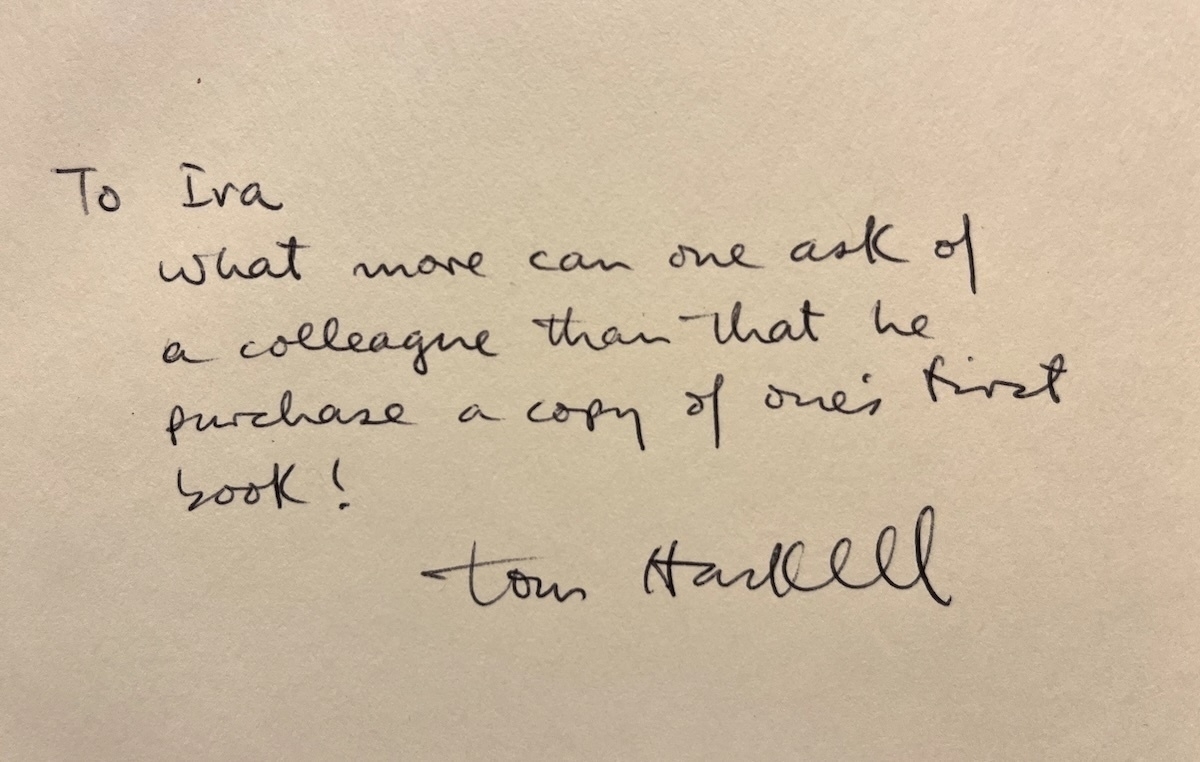 To Ira
what more can one ask of
a colleague than that he
purchase a copy of one's first
book!
Tom Haskell